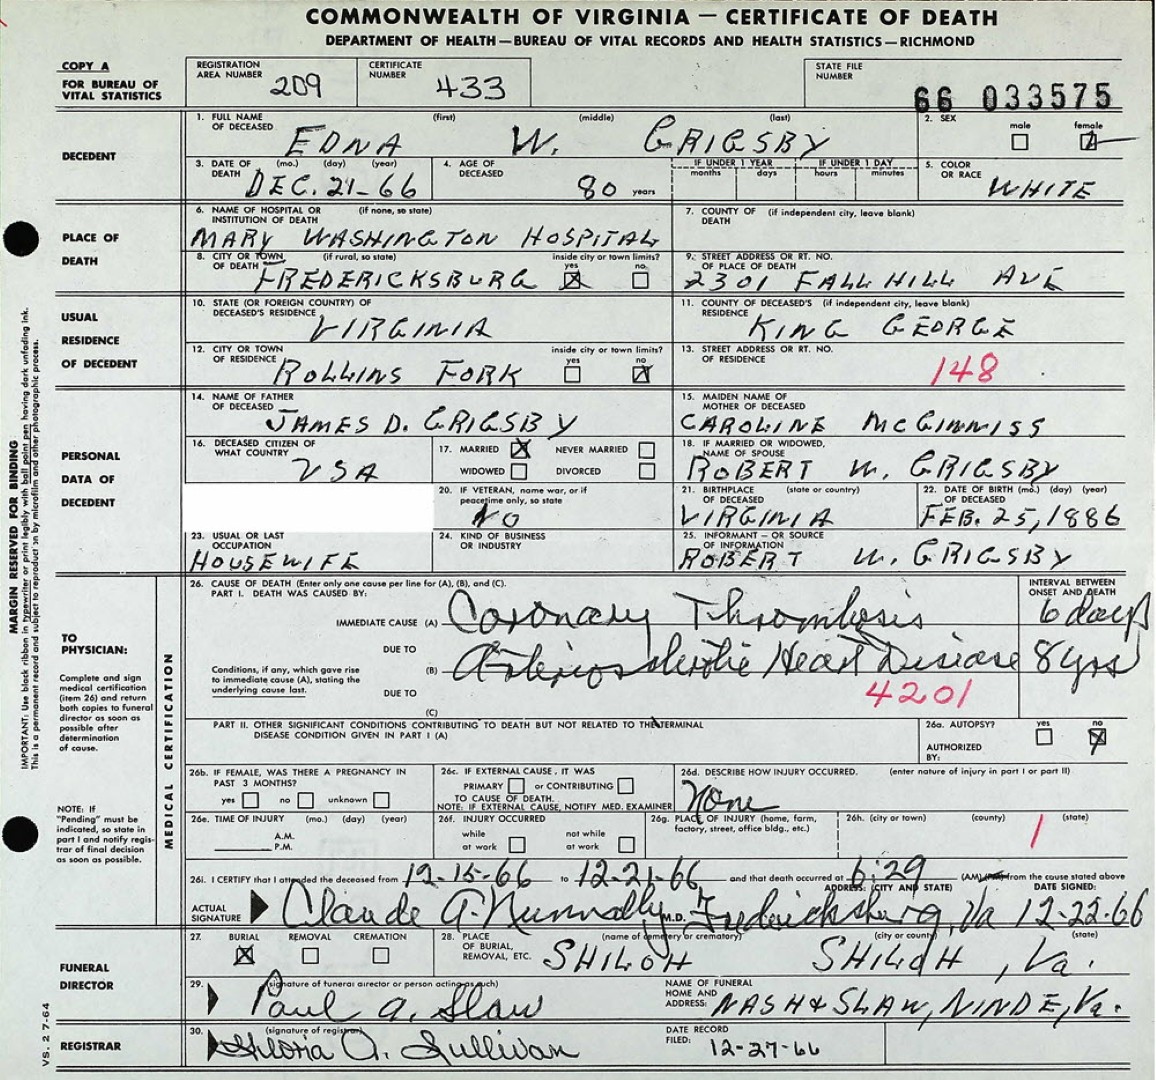 COMMONWEALTH OF VIRGINIA — CERTIFICATE OF DEATH
DEPARTMENT OF HEALTH—BUREAU OF VITAL RECORDS AND HEALTH STATISTICS—RICHMOND
COPY A
FOR BUREAU OF
VITAL STATISTICS
REGISTRATION
AREA NUMBER 209
CERTIFICATE
NUMBER 433
STATE FILE
NUMBER
66 033575
DECEDENT
1. FULL NAME (first) (middle) (last)
OF DECEASED
EDNA W. GRIGSBY
2. SEX male female
3. DATE OF (mo.) (day) (year)
DEATH
DEC. 21-66
4. AGE OF
DECEASED
80 years
IF UNDER 1 YEAR
months days
IF UNDER 1 DAY
hours minutes
5. COLOR
OR RACE
WHITE
PLACE OF
DEATH
6. NAME OF HOSPITAL OR (if none, so state)
INSTITUTION OF DEATH
MARY WASHINGTON HOSPITAL
7. COUNTY OF (if independent city, leave blank)
DEATH
8. CITY OR TOWN (if rural, so state)
OF DEATH
FREDERICKSBURG
inside city or town limits?
yes no
9. STREET ADDRESS OR RT. NO.
OF PLACE OF DEATH
2301 FALL HILL AVE
USUAL
RESIDENCE
OF DECEDENT
10. STATE (OR FOREIGN COUNTRY) OF
DECEASED'S RESIDENCE
VIRGINIA
11. COUNTY OF DECEASED'S (if independent city, leave blank)
RESIDENCE
KING GEORGE
12. CITY OR TOWN
OF RESIDENCE
ROLLINS FORK
inside city or town limits?
yes no
13. STREET ADDRESS OR RT. NO.
OF RESIDENCE
148
PERSONAL
DATA OF
DECEDENT
14. NAME OF FATHER
OF DECEASED
JAMES D. GRIGSBY
15. MAIDEN NAME OF
MOTHER OF DECEASED
CAROLINE McGINNISS
16. DECEASED CITIZEN OF
WHAT COUNTRY
USA
17. MARRIED NEVER MARRIED
WIDOWED DIVORCED
18. IF MARRIED OR WIDOWED,
NAME OF SPOUSE
ROBERT W. GRIGSBY
20. IF VETERAN, name war, or if
peacetime only, so state
NO
21. BIRTHPLACE (state or country)
OF DECEASED
VIRGINIA
22. DATE OF BIRTH (mo.) (day) (year)
OF DECEASED
FEB. 25, 1886
23. USUAL OR LAST
OCCUPATION
HOUSEWIFE
24. KIND OF BUSINESS
OR INDUSTRY
25. INFORMANT — OR SOURCE
OF INFORMATION
ROBERT W. GRIGSBY
MARGIN RESERVED FOR BINDING
IMPORTANT: Use black ribbon in typewriter or print legibly with ball point pen having dark unfading ink.
This is a permanent record and subject to reproduction by microfilm and other photographic process.
TO
PHYSICIAN:
Complete and sign
medical certification
(item 26) and return
both copies to funeral
director as soon as
possible after
determination
of cause.
NOTE: IF
"Pending" must be
indicated, so state in
part I and notify regis-
trar of final decision
as soon as possible.
MEDICAL CERTIFICATION
26. CAUSE OF DEATH (Enter only one cause per line for (A), (B), and (C).
PART I. DEATH WAS CAUSED BY:
INTERVAL BETWEEN
ONSET AND DEATH
IMMEDIATE CAUSE (A) Coronary Thrombosis 6 days
DUE TO
(B) Arteriosclerotic Heart Disease 8 yrs
Conditions, if any, which gave rise
to immediate cause (A), stating the
underlying cause last.
DUE TO
(C)
4201
PART II. OTHER SIGNIFICANT CONDITIONS CONTRIBUTING TO DEATH BUT NOT RELATED TO THE TERMINAL
DISEASE CONDITION GIVEN IN PART I (A)
26a. AUTOPSY? yes no
AUTHORIZED
BY:
26b. IF FEMALE, WAS THERE A PREGNANCY IN
PAST 3 MONTHS?
yes no unknown
26c. IF EXTERNAL CAUSE, IT WAS
PRIMARY or CONTRIBUTING
TO CAUSE OF DEATH.
NOTE: IF EXTERNAL CAUSE, NOTIFY MED. EXAMINER
26d. DESCRIBE HOW INJURY OCCURRED. (enter nature of injury in part I or part II)
None
26e. TIME OF INJURY (mo.) (day) (year)
A.M.
P.M.
26f. INJURY OCCURRED
while not while
at work at work
26g. PLACE OF INJURY (home, farm,
factory, street, office bldg., etc.)
26h. (city or town) (county) (state)
1
26i. I CERTIFY that I attended the deceased from 12-15-66 to 12-21-66 and that death occurred at 6:29 (AM) (PM) from the cause stated above
ADDRESS: (CITY AND STATE) DATE SIGNED:
ACTUAL
SIGNATURE
Claude A. Nunnally M.D. Fredericksburg, Va 12-22-66
FUNERAL
DIRECTOR
27. BURIAL REMOVAL CREMATION
28. PLACE
OF BURIAL,
REMOVAL, ETC.
(name of cemetery or crematory) (city or county) (state)
SHILOH SHILOH, Va.
29. (signature of funeral director or person acting as such)
Paul A. Slaw
NAME OF FUNERAL
HOME AND
ADDRESS:
NASH & SLAW, NINDE, Va.
REGISTRAR
30. (signature of registrar)
Gloria A. Sullivan
DATE RECORD
FILED:
12-27-66
VS. 2 7-64